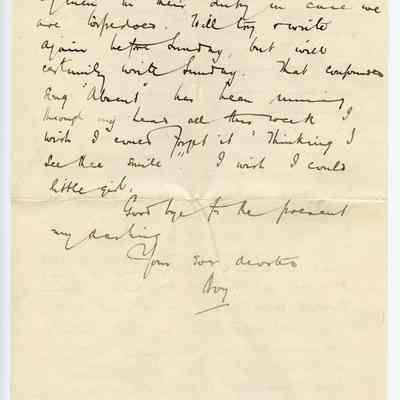 in their duty in case we
are torpedoed. Will try & write
again before Sunday, but will
certainly write Sunday. That confounded
song "Absent" has been running
through my head all this week I
wish I could forget it "Thinking I
see thee smile". I wish I could
little girl.
Good bye for the present
my darling
Your ever devoted
Boy